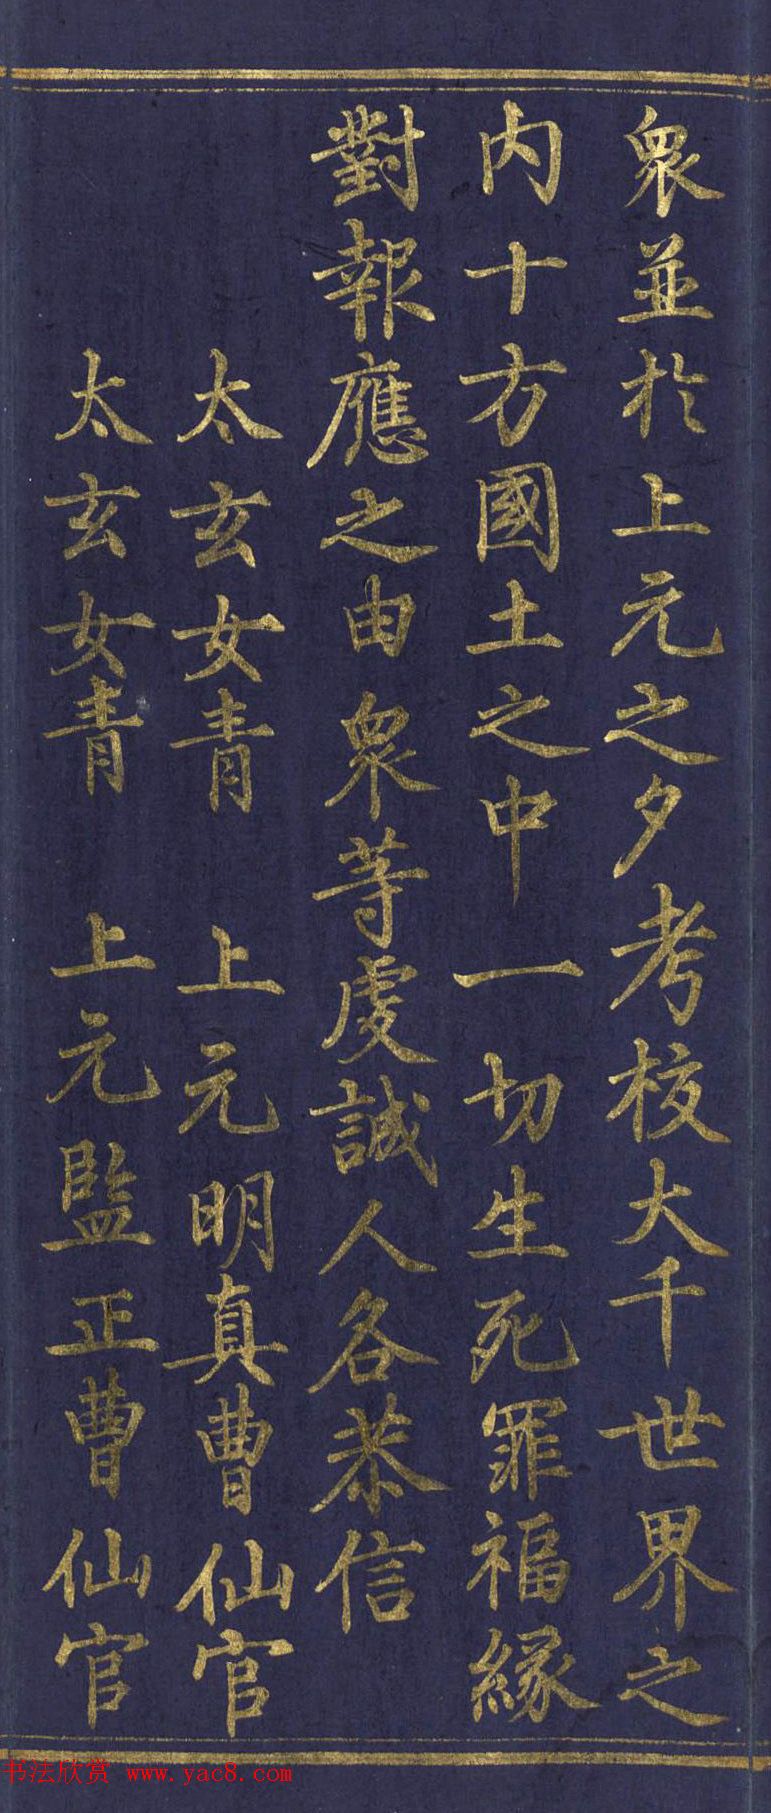 眾並於上元之夕考校大千世界之
內十方國土之中一切生死罪福緣
對報應之由眾等虔誠人各恭信
太玄女青 上元明真曹仙官
太玄女青 上元監正曹仙官
书法欣赏 www.yac8.com